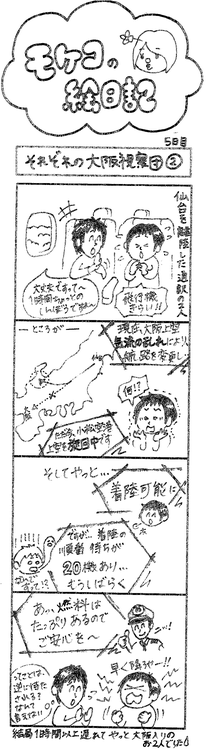 モケコの
絵日記
5日目
それぞれの大阪視察団②
仙台を離陸した通訳の2人
大丈夫ですって〜
1時間ちょっとの
しんぼうですから〜
飛行機
きらい!!
ところが
現在、大阪上空
気流の乱れにより
航路を変更し
ただ今、小松空港
上空を旋回中です
何!?
そしてやっと…
着陸可能に
ですが、着陸の
順番待ちが
20機あり…
もうしばらく
あっ、燃料は
たっぷりあるので
ご安心を〜
早く降ろせー!!
ってことは、
逆に待た
されるってなれて
言えない
結局1時間以上遅れてやっと大阪入りの
お2人でした